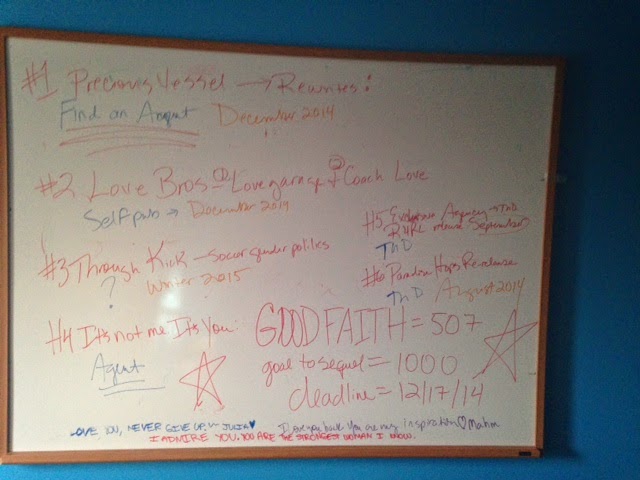 #1 Precious Vessel → Rewrites!
Find an Agent December 2014
#2 Love Bros - ① Lovegarage + ② Coach Love
Self pub → December 2014
#3 Through Kick - Soccer gender politics
? Winter 2015
#4 Its not me Its You:
Agent
#5 Agency → ThD
release September
ThD
#6 Paradise Hops Rerelease
ThD August 2014
GOOD FAITH = 507
goal to sequel = 1000
deadline = 12/17/14
LOVE YOU, NEVER GIVE UP. ~ JULIA♥
I love you back. You are my inspiration ♡ Mahm
I ADMIRE YOU. YOU ARE THE STRONGEST WOMAN I KNOW.